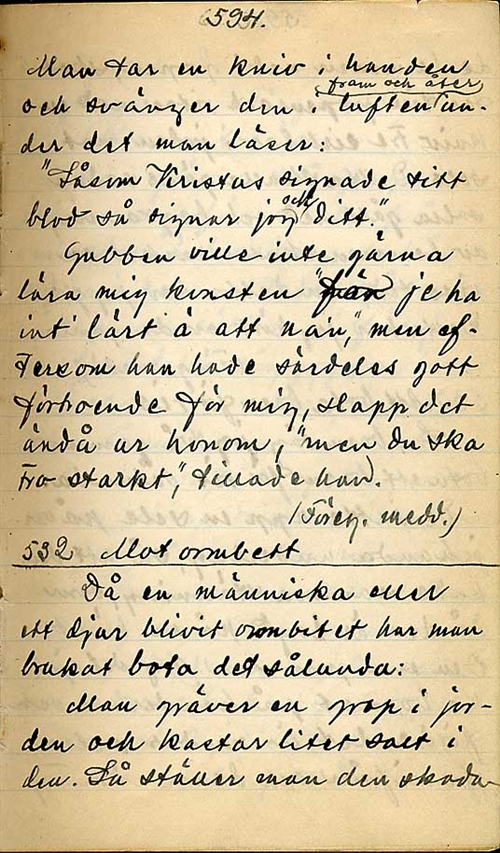 594.
Man tar en kniv i handen
fram och åter
och svänger den i luften un-
der det man läser:
"Såsom Kristus signade sitt
och
blod så signar jag ditt."
Gubben ville inte gärna
lära mig konsten "från je ha
int' lärt å att nån", men ef-
tersom han hade särdeles gott
förtroende för mig, slapp det
ändå ur honom, "men du ska
tro starkt", tillade han.
(Föreg. medd.)
532 Mot ormbett
Då en människa eller
ett djur blivit ormbitet har man
brukat bota det sålunda:
Man gräver en grop i jor-
den och kastar litet salt i
den. Så ställer man den skada-